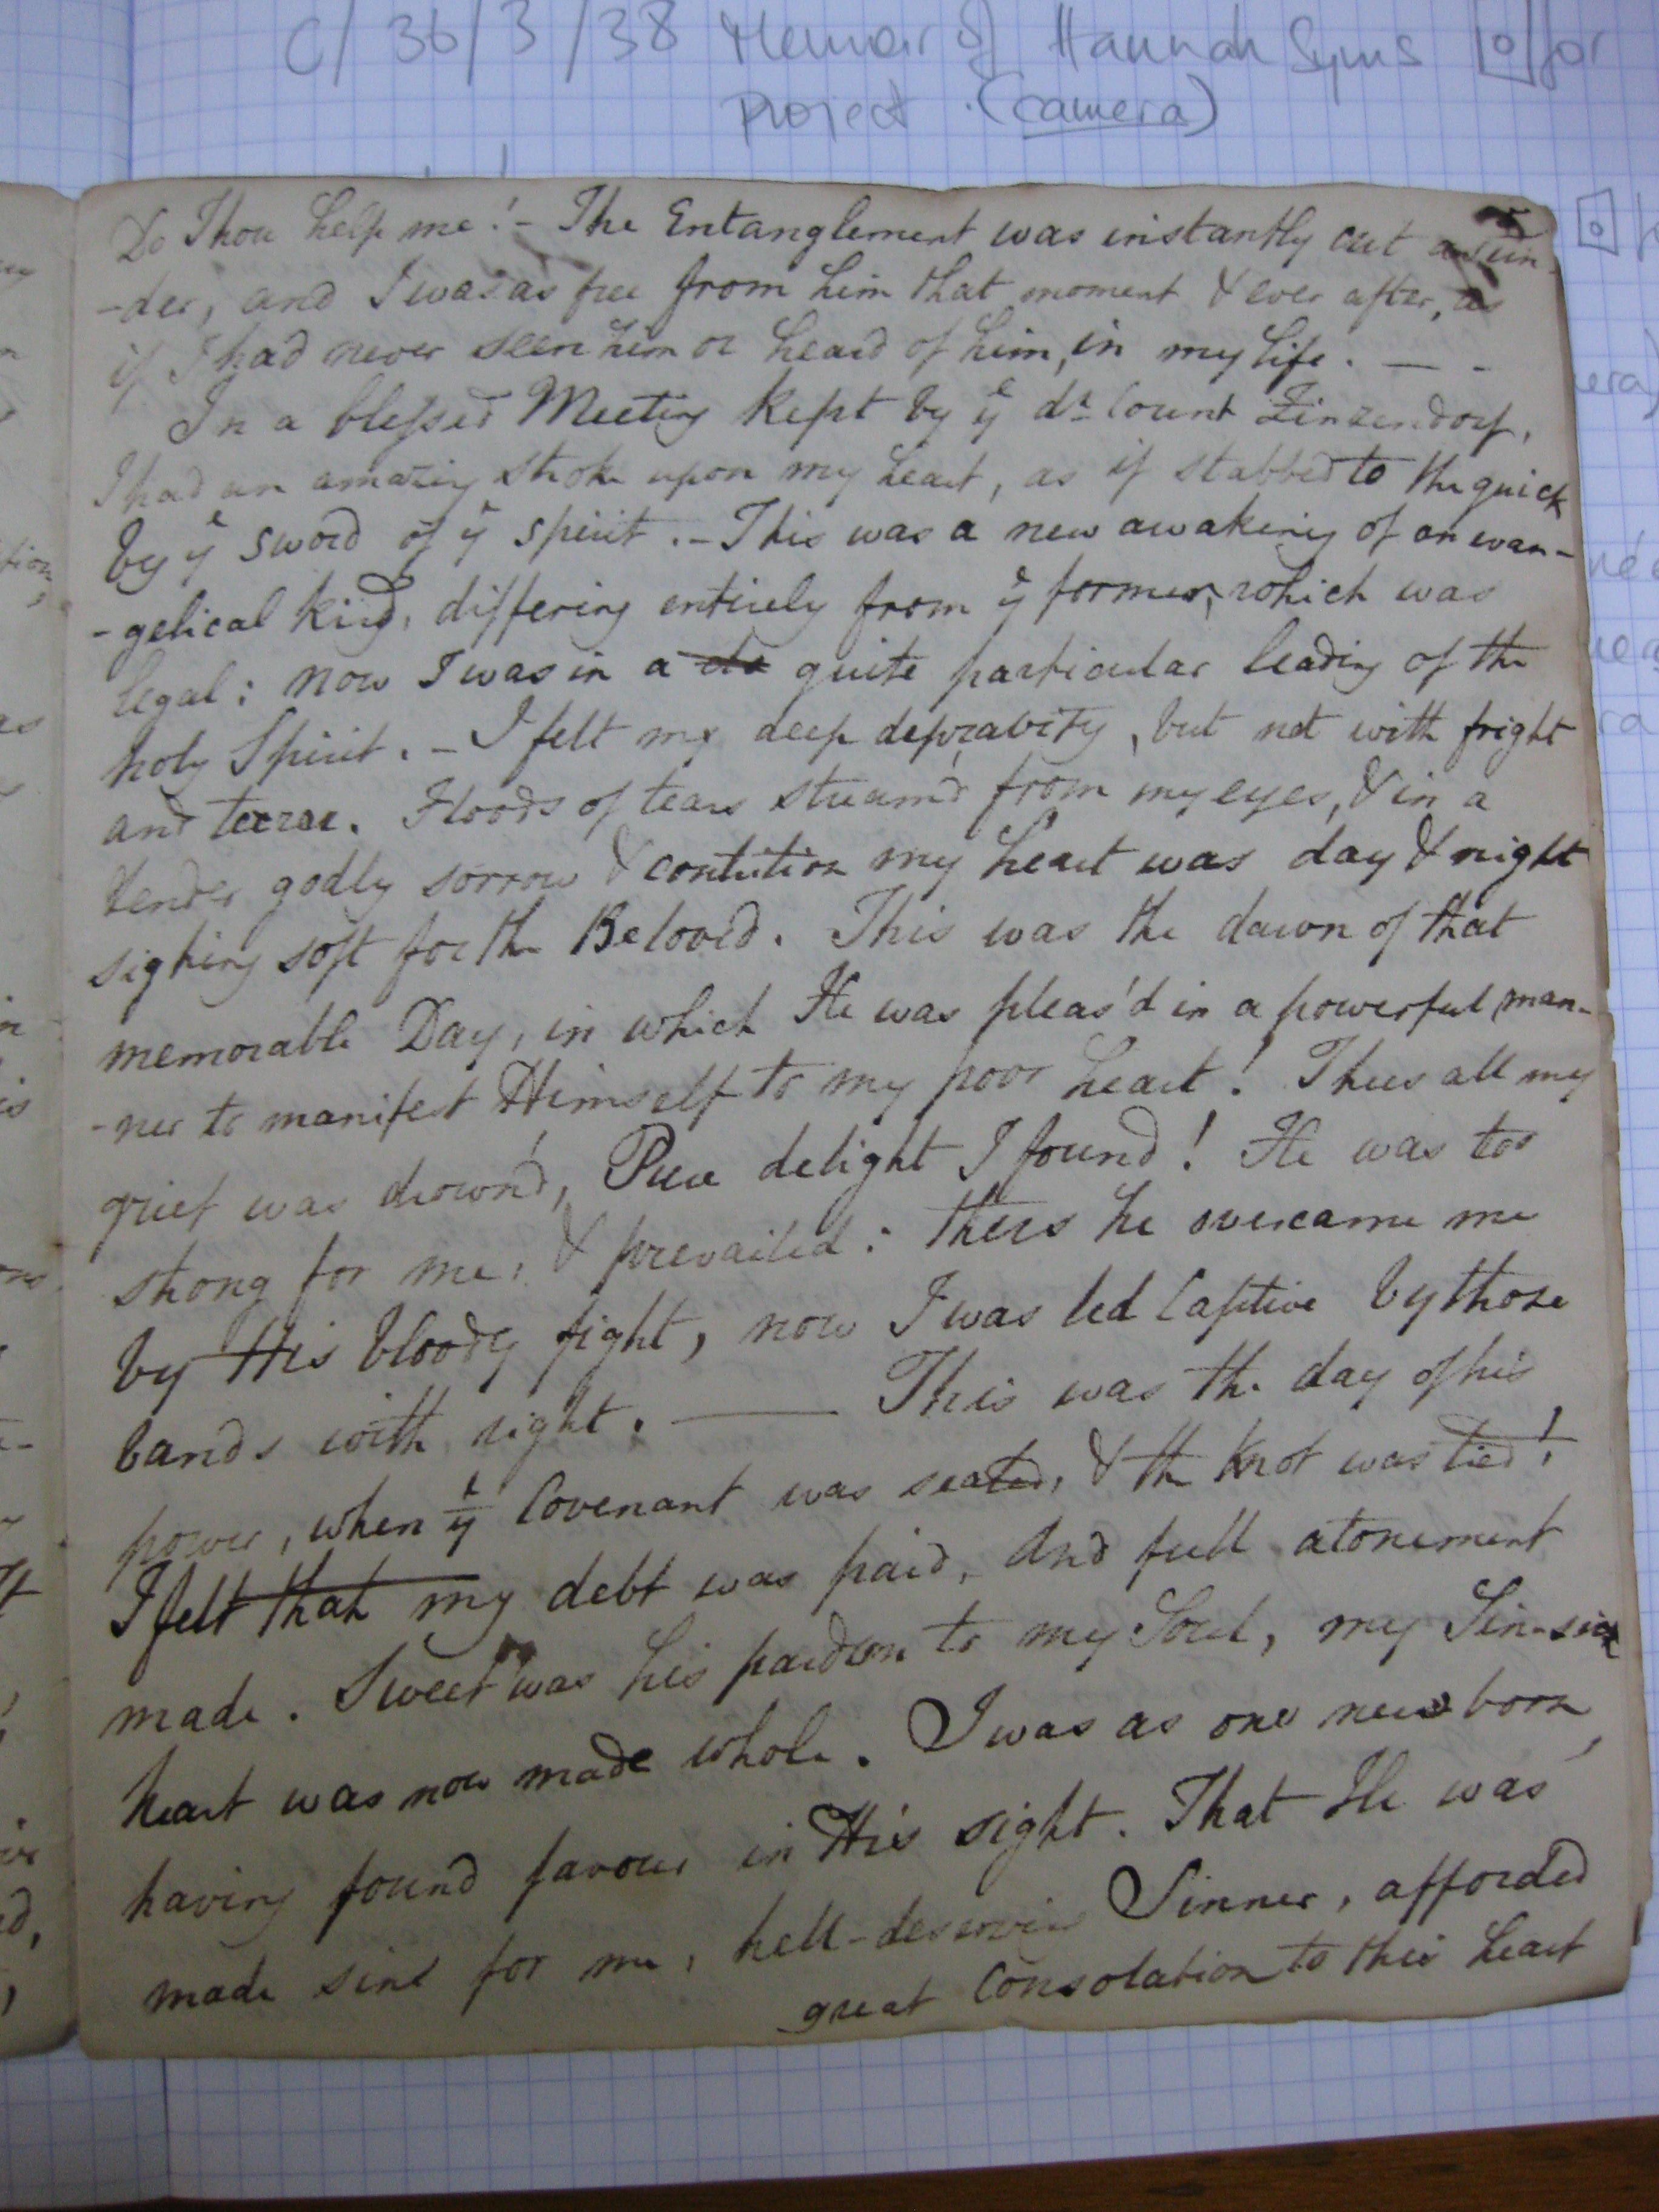 C/36/3/38 Memoir of Hannah Syms for
Project. (camera)
Do Thou help me! - The Entanglement was instantly cut asun-
-der, and I was as free from him that moment & ever after, as
if I had never seen him or heard of him, in my life. — -
In a blessed Meeting kept by yͤ dʳ Count Zinzendorf,
I had an amazing stroke upon my heart, as if stabbed to the quick
by yͤ sword of yͤ spirit. - This was a new awakening of an evan-
-gelical kind, differing entirely from yͤ former, which was
legal: now I was in a quite particular leading of the
holy Spirit. - I felt my deep depravity, but not with fright
and terror. Floods of tears stream'd from my eyes, & in a
tender godly sorrow & contrition my heart was day & night
sighing soft for the Beloved. This was the dawn of that
memorable Day, in which He was pleas'd in a powerful man-
-ner to manifest Himself to my poor heart! Thus all my
grief was drown'd, Pure delight I found! He was too
strong for me, & prevailed: thus he overcame me
by His bloody fight, now I was led Captive by those
bands with right. — This was the day of his
power, when yͤ Covenant was sealed, & the Knot was tied!
I felt that my debt was paid, And full atonement
made. Sweet was his pardon to my Soul, my Sin-sick
heart was now made whole. I was as one new born,
having found favour in His sight. That He was
made sin for me, hell-deserving Sinner, afforded
great Consolation to this heart